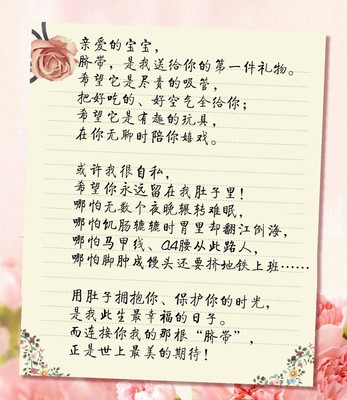 亲爱的宝宝，
脐带，是我送给你的第一件礼物。
希望它是尽责的吸管，
把好吃的、好空气全给你；
希望它是有趣的玩具，
在你无聊时陪你嬉戏。
或许我很自私，
希望你永远留在我肚子里！
哪怕无数个夜晚辗转难眠，
哪怕饥肠辘辘时胃里却翻江倒海，
哪怕马甲线、A4腰从此路人，
哪怕脚肿成馒头还要挤地铁上班……
用肚子拥抱你、保护你的时光，
是我此生最幸福的日子。
而连接你我的那根“脐带”，
正是世上最美的期待！